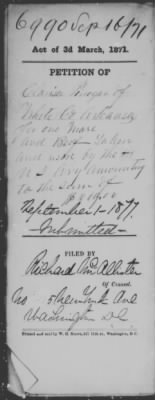 6990 Sep 16/71
Act of 3d March, 1871.
PETITION OF
Clarisa Bogan of
White Co Arkansas
for one Mare
and Beef Taken
and used by the
U S Army Amounting
to the sum of
September 1 - 1871.
Submitted
FILED BY
Richard McAllister
Of Counsel.
No New York Ave
Washington DC